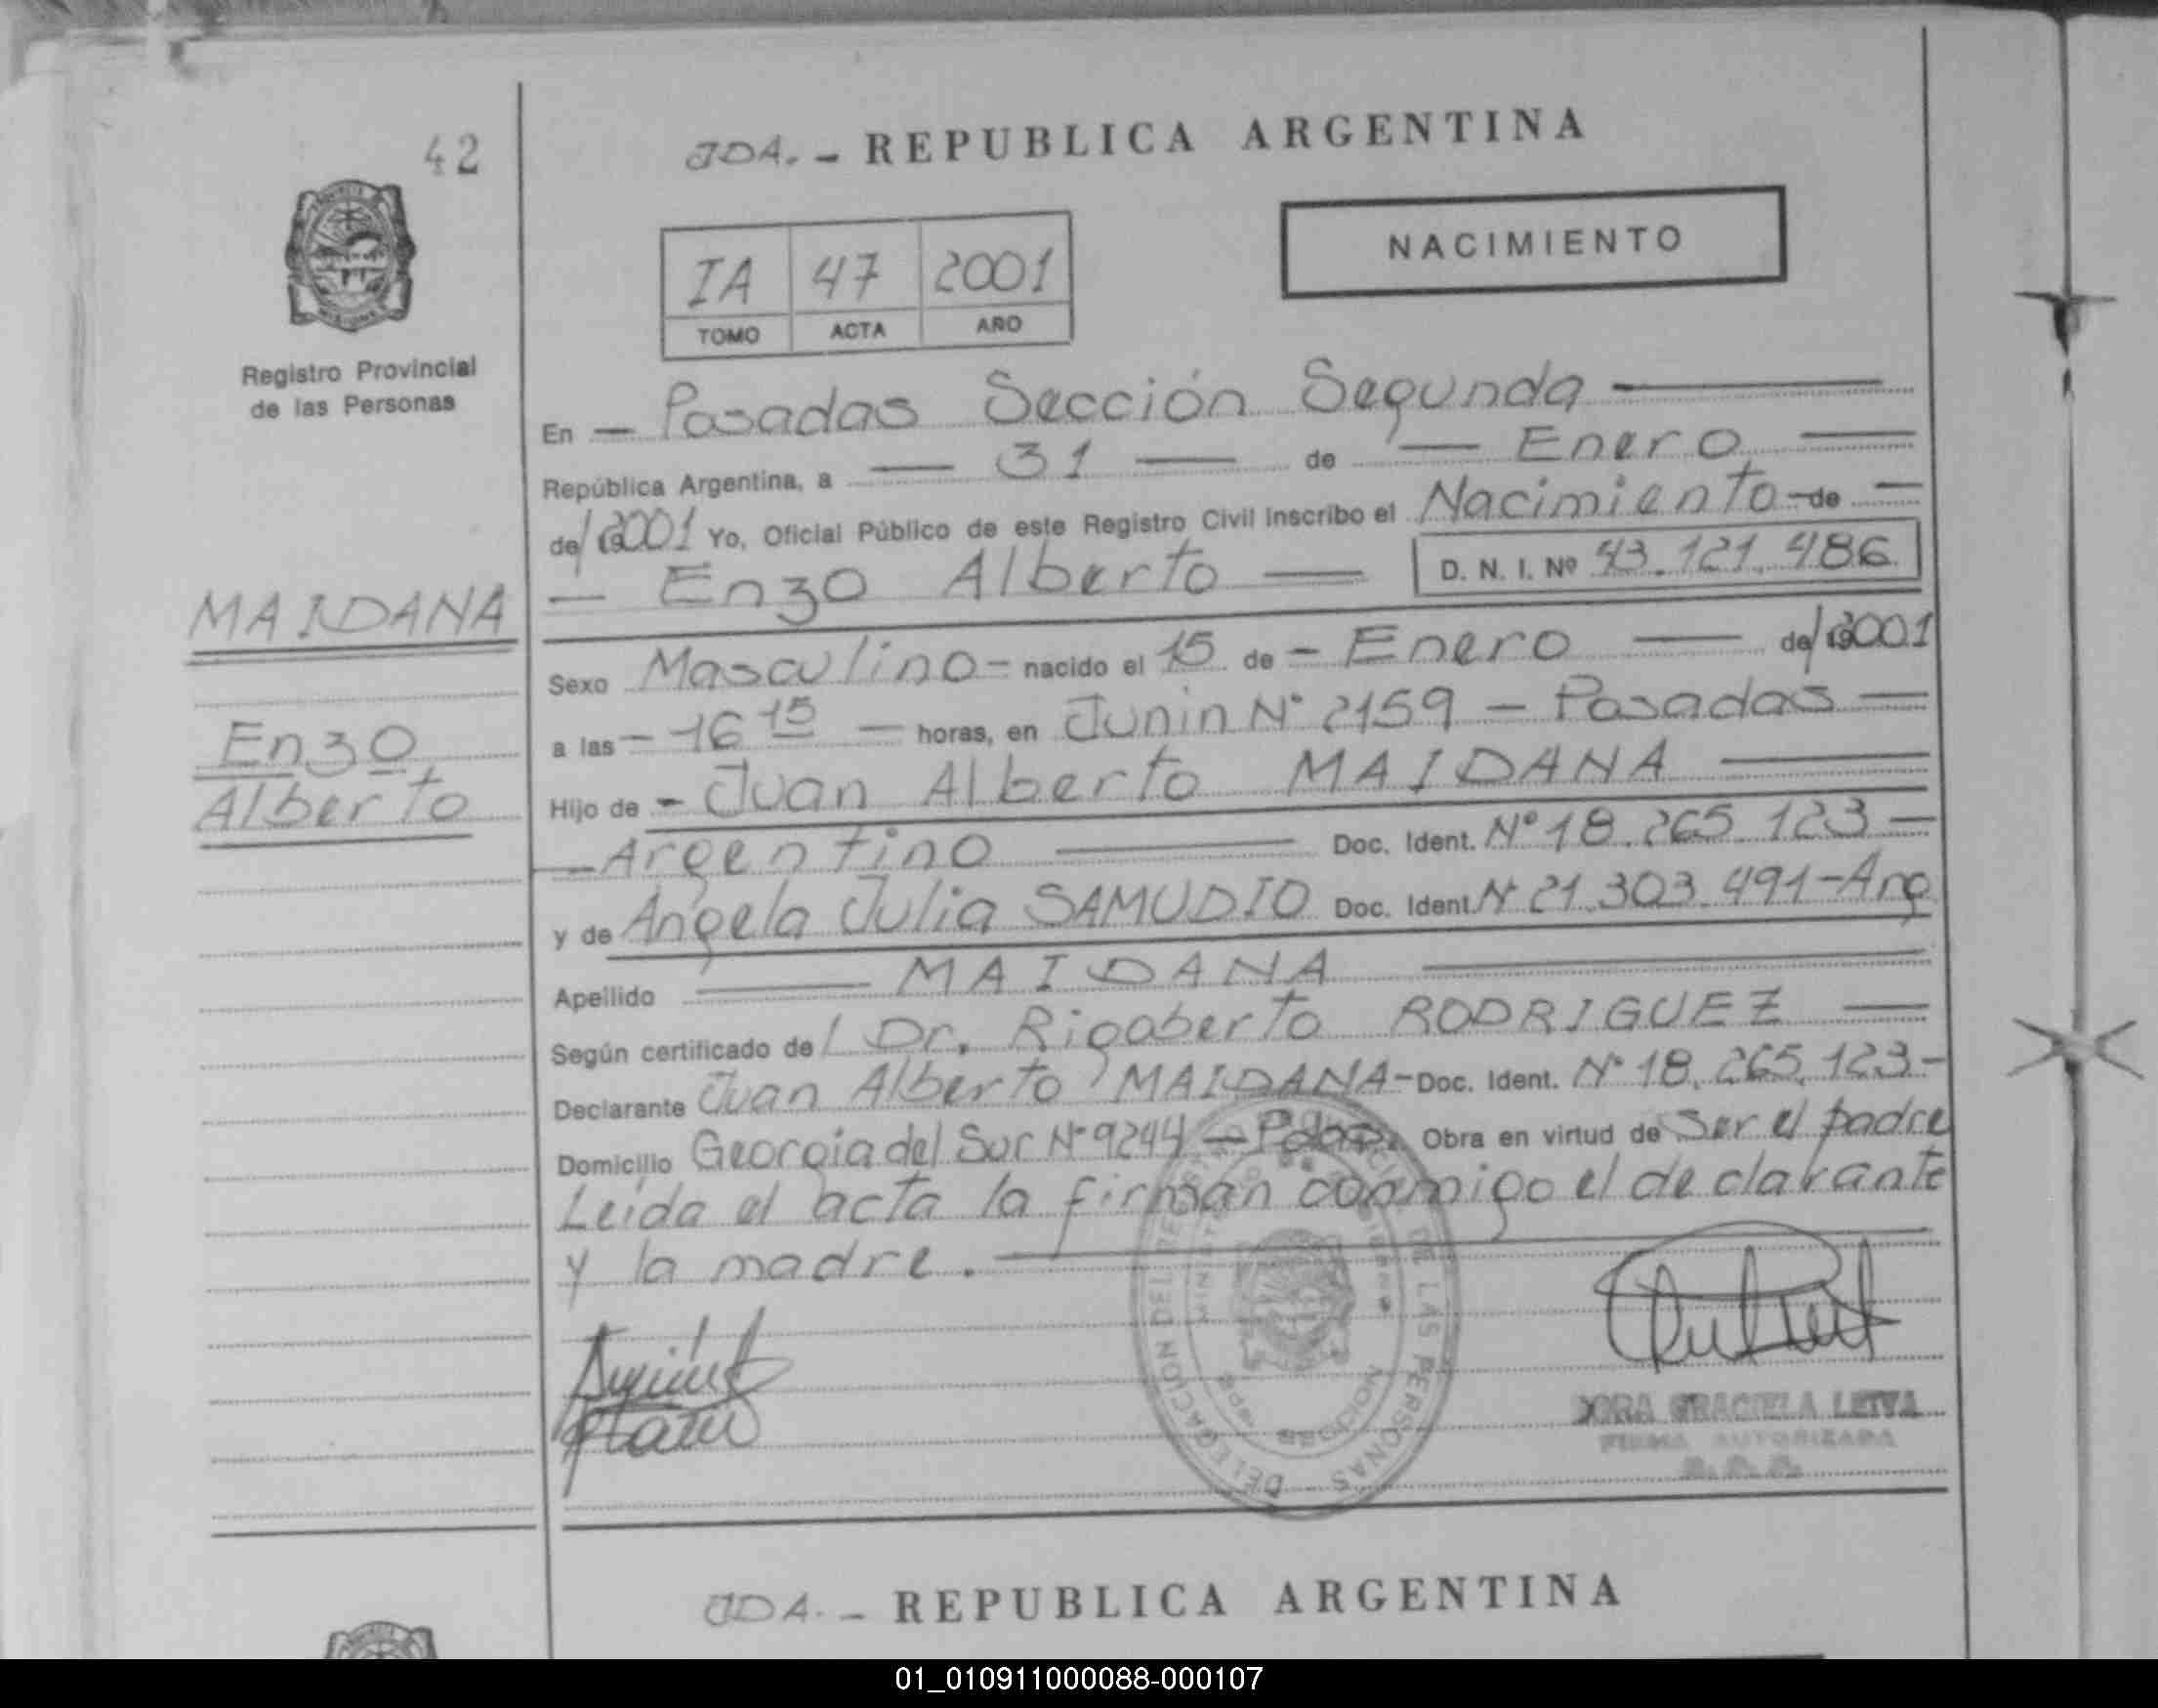 42
JDA. - REPUBLICA ARGENTINA
NACIMIENTO
IA 47 2001
TOMO ACTA AÑO
Registro Provincial
de las Personas
En — Posadas Sección Segunda —
República Argentina, a — 31 — de — Enero —
de/ 2001 Yo, Oficial Público de este Registro Civil inscribo el Nacimiento - de —
— Enzo Alberto — D. N. I. Nº 43.121.486
MAIDANA
Enzo
Alberto
Sexo Masculino - nacido el 15 de - Enero — de/ 2001
a las - 16 15 — horas, en Junin N° 2159 - Posadas —
Hijo de - Juan Alberto MAIDANA —
— Argentino — Doc. Ident. N° 18.265.123 —
y de Angela Julia SAMUDIO Doc. Ident. N° 21.303.491 - Arg
Apellido — MAIDANA —
Según certificado de/ Dr. Rigoberto RODRIGUEZ —
Declarante Juan Alberto MAIDANA - Doc. Ident. N° 18.265.123 -
Domicilio Georgia del Sur N° 9244 — Pdas. Obra en virtud de Ser el padre
Leida el acta la firman conmigo el declarante
y la madre. —
DELEGACION DEL REGISTRO PROVINCIAL DE LAS PERSONAS
MINISTERIO DE GOBIERNO
MISIONES
DORA GRACIELA LEIVA
FIRMA AUTORIZADA
JDA. - REPUBLICA ARGENTINA
01_010911000088-000107